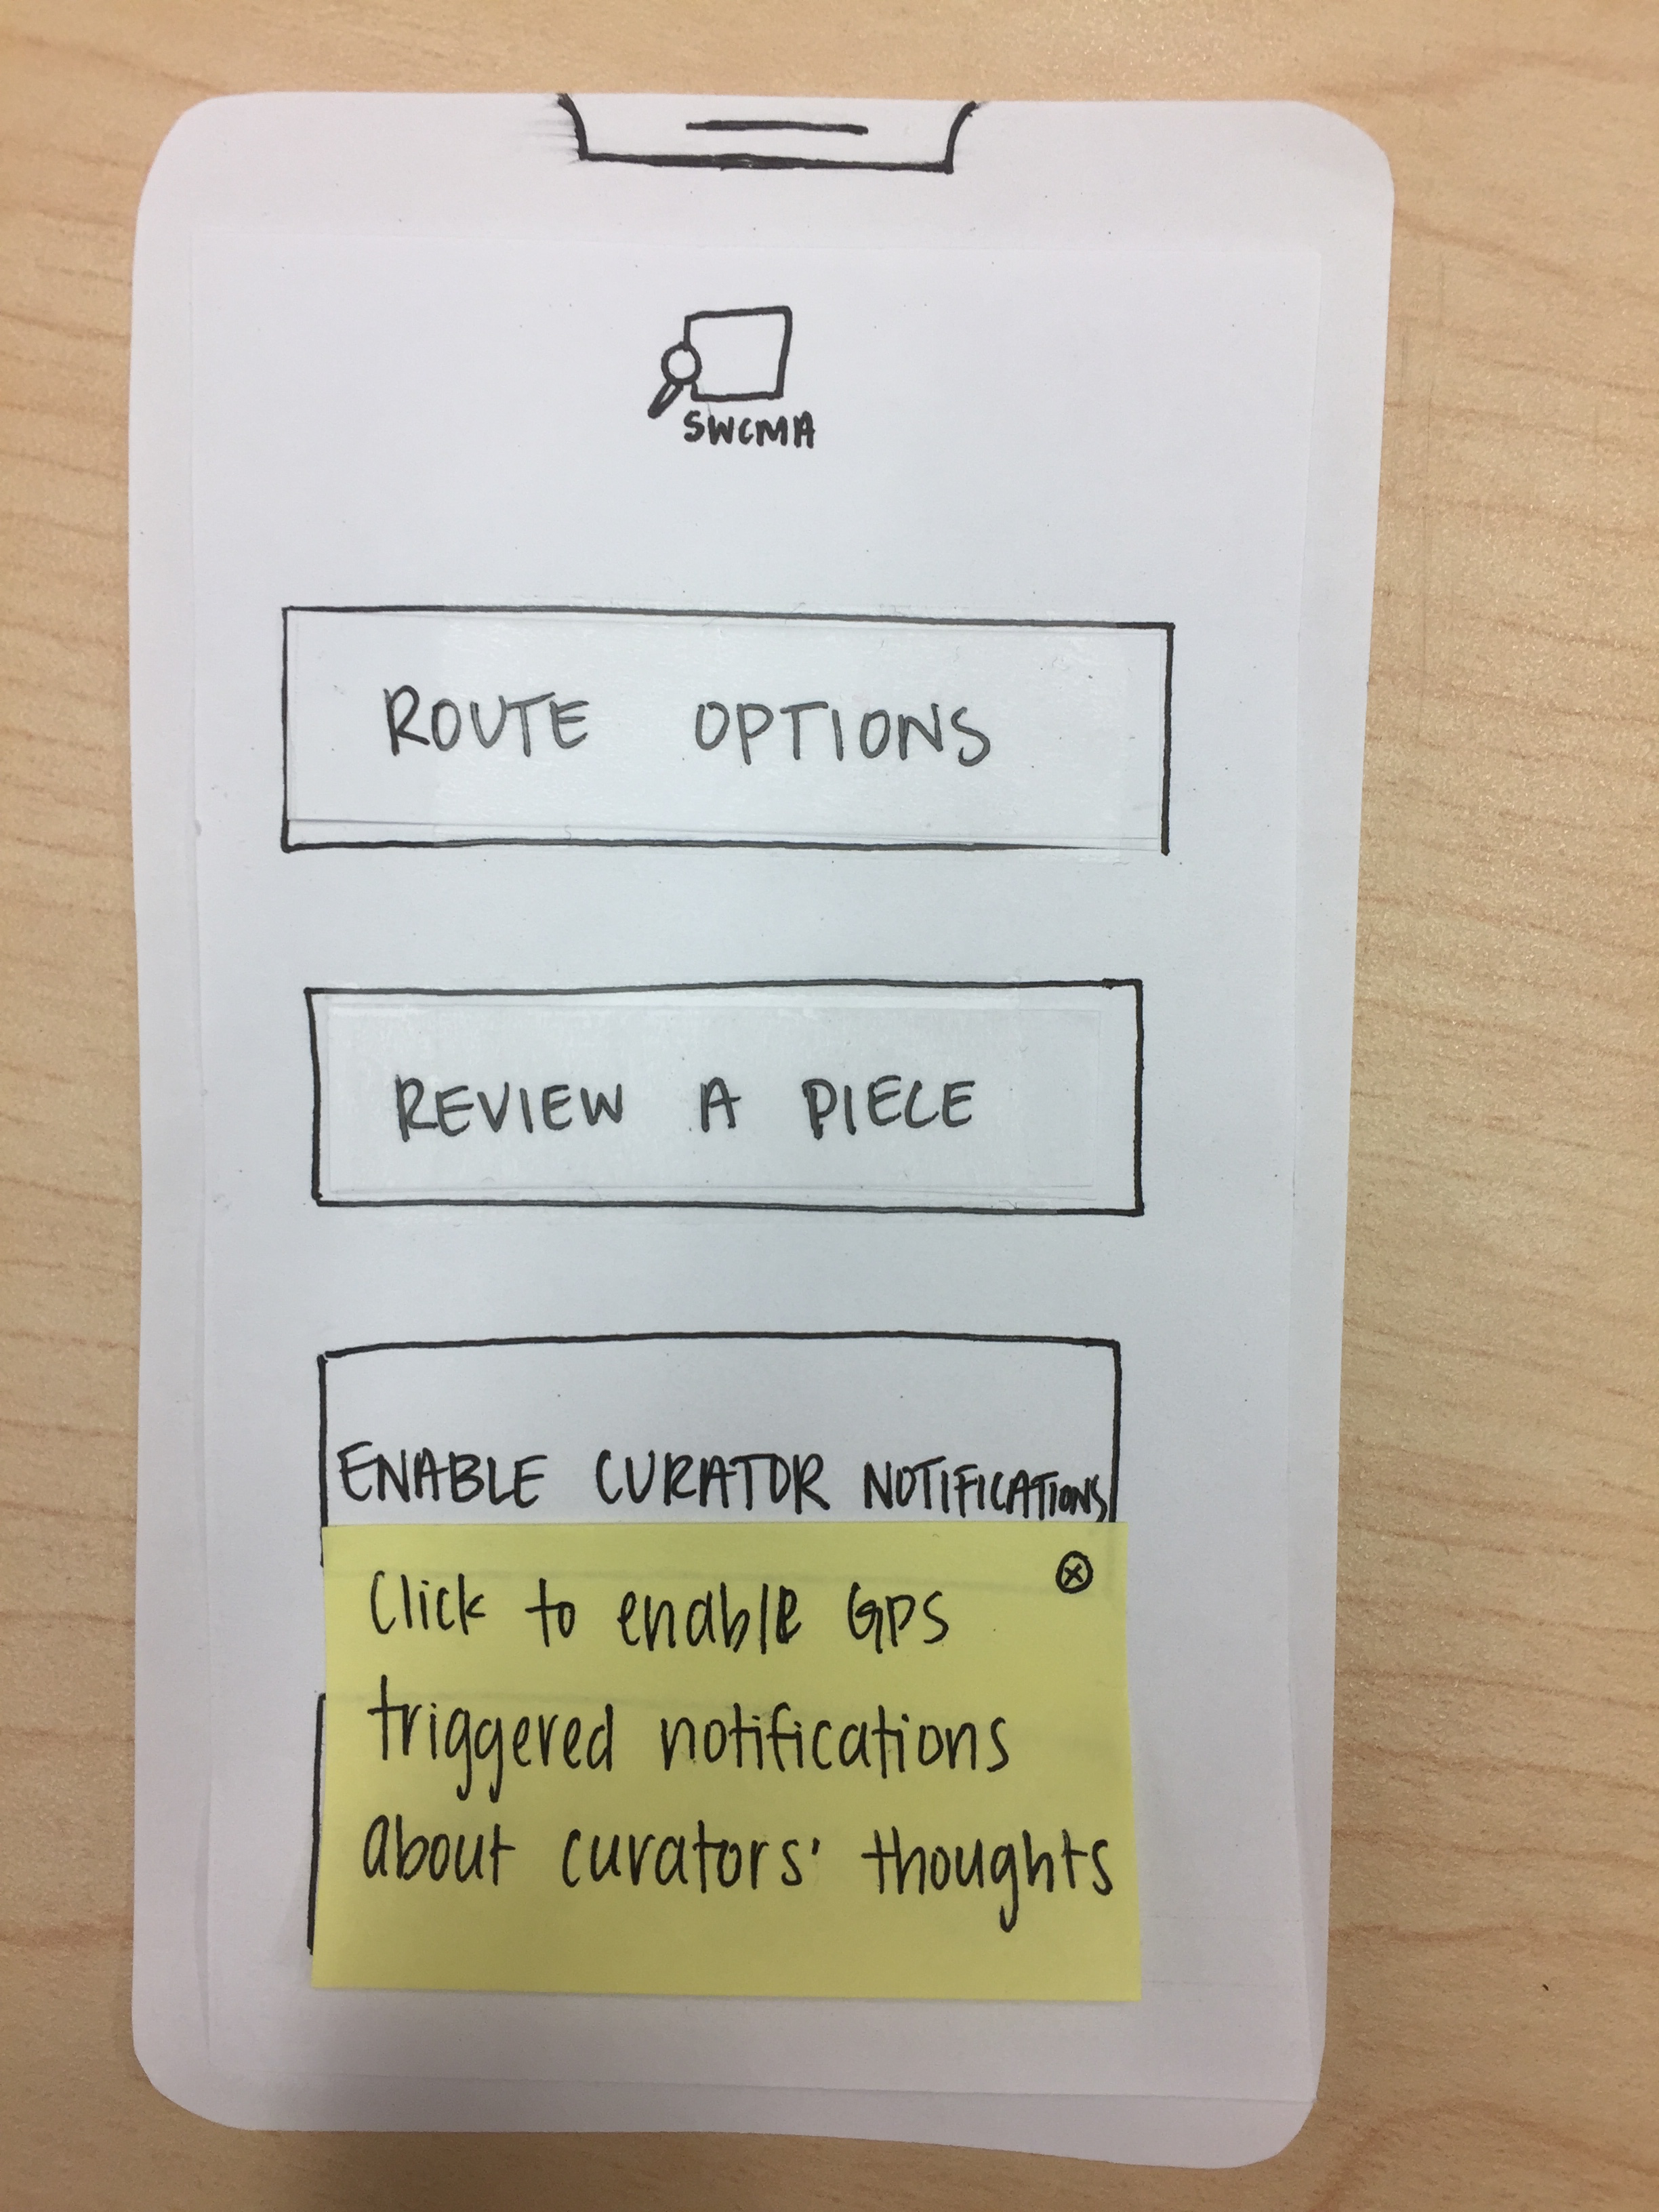 SWCMA
ROUTE OPTIONS
REVIEW A PIECE
ENABLE CURATOR NOTIFICATIONS
Click to enable GPS
triggered notifications
about curators' thoughts